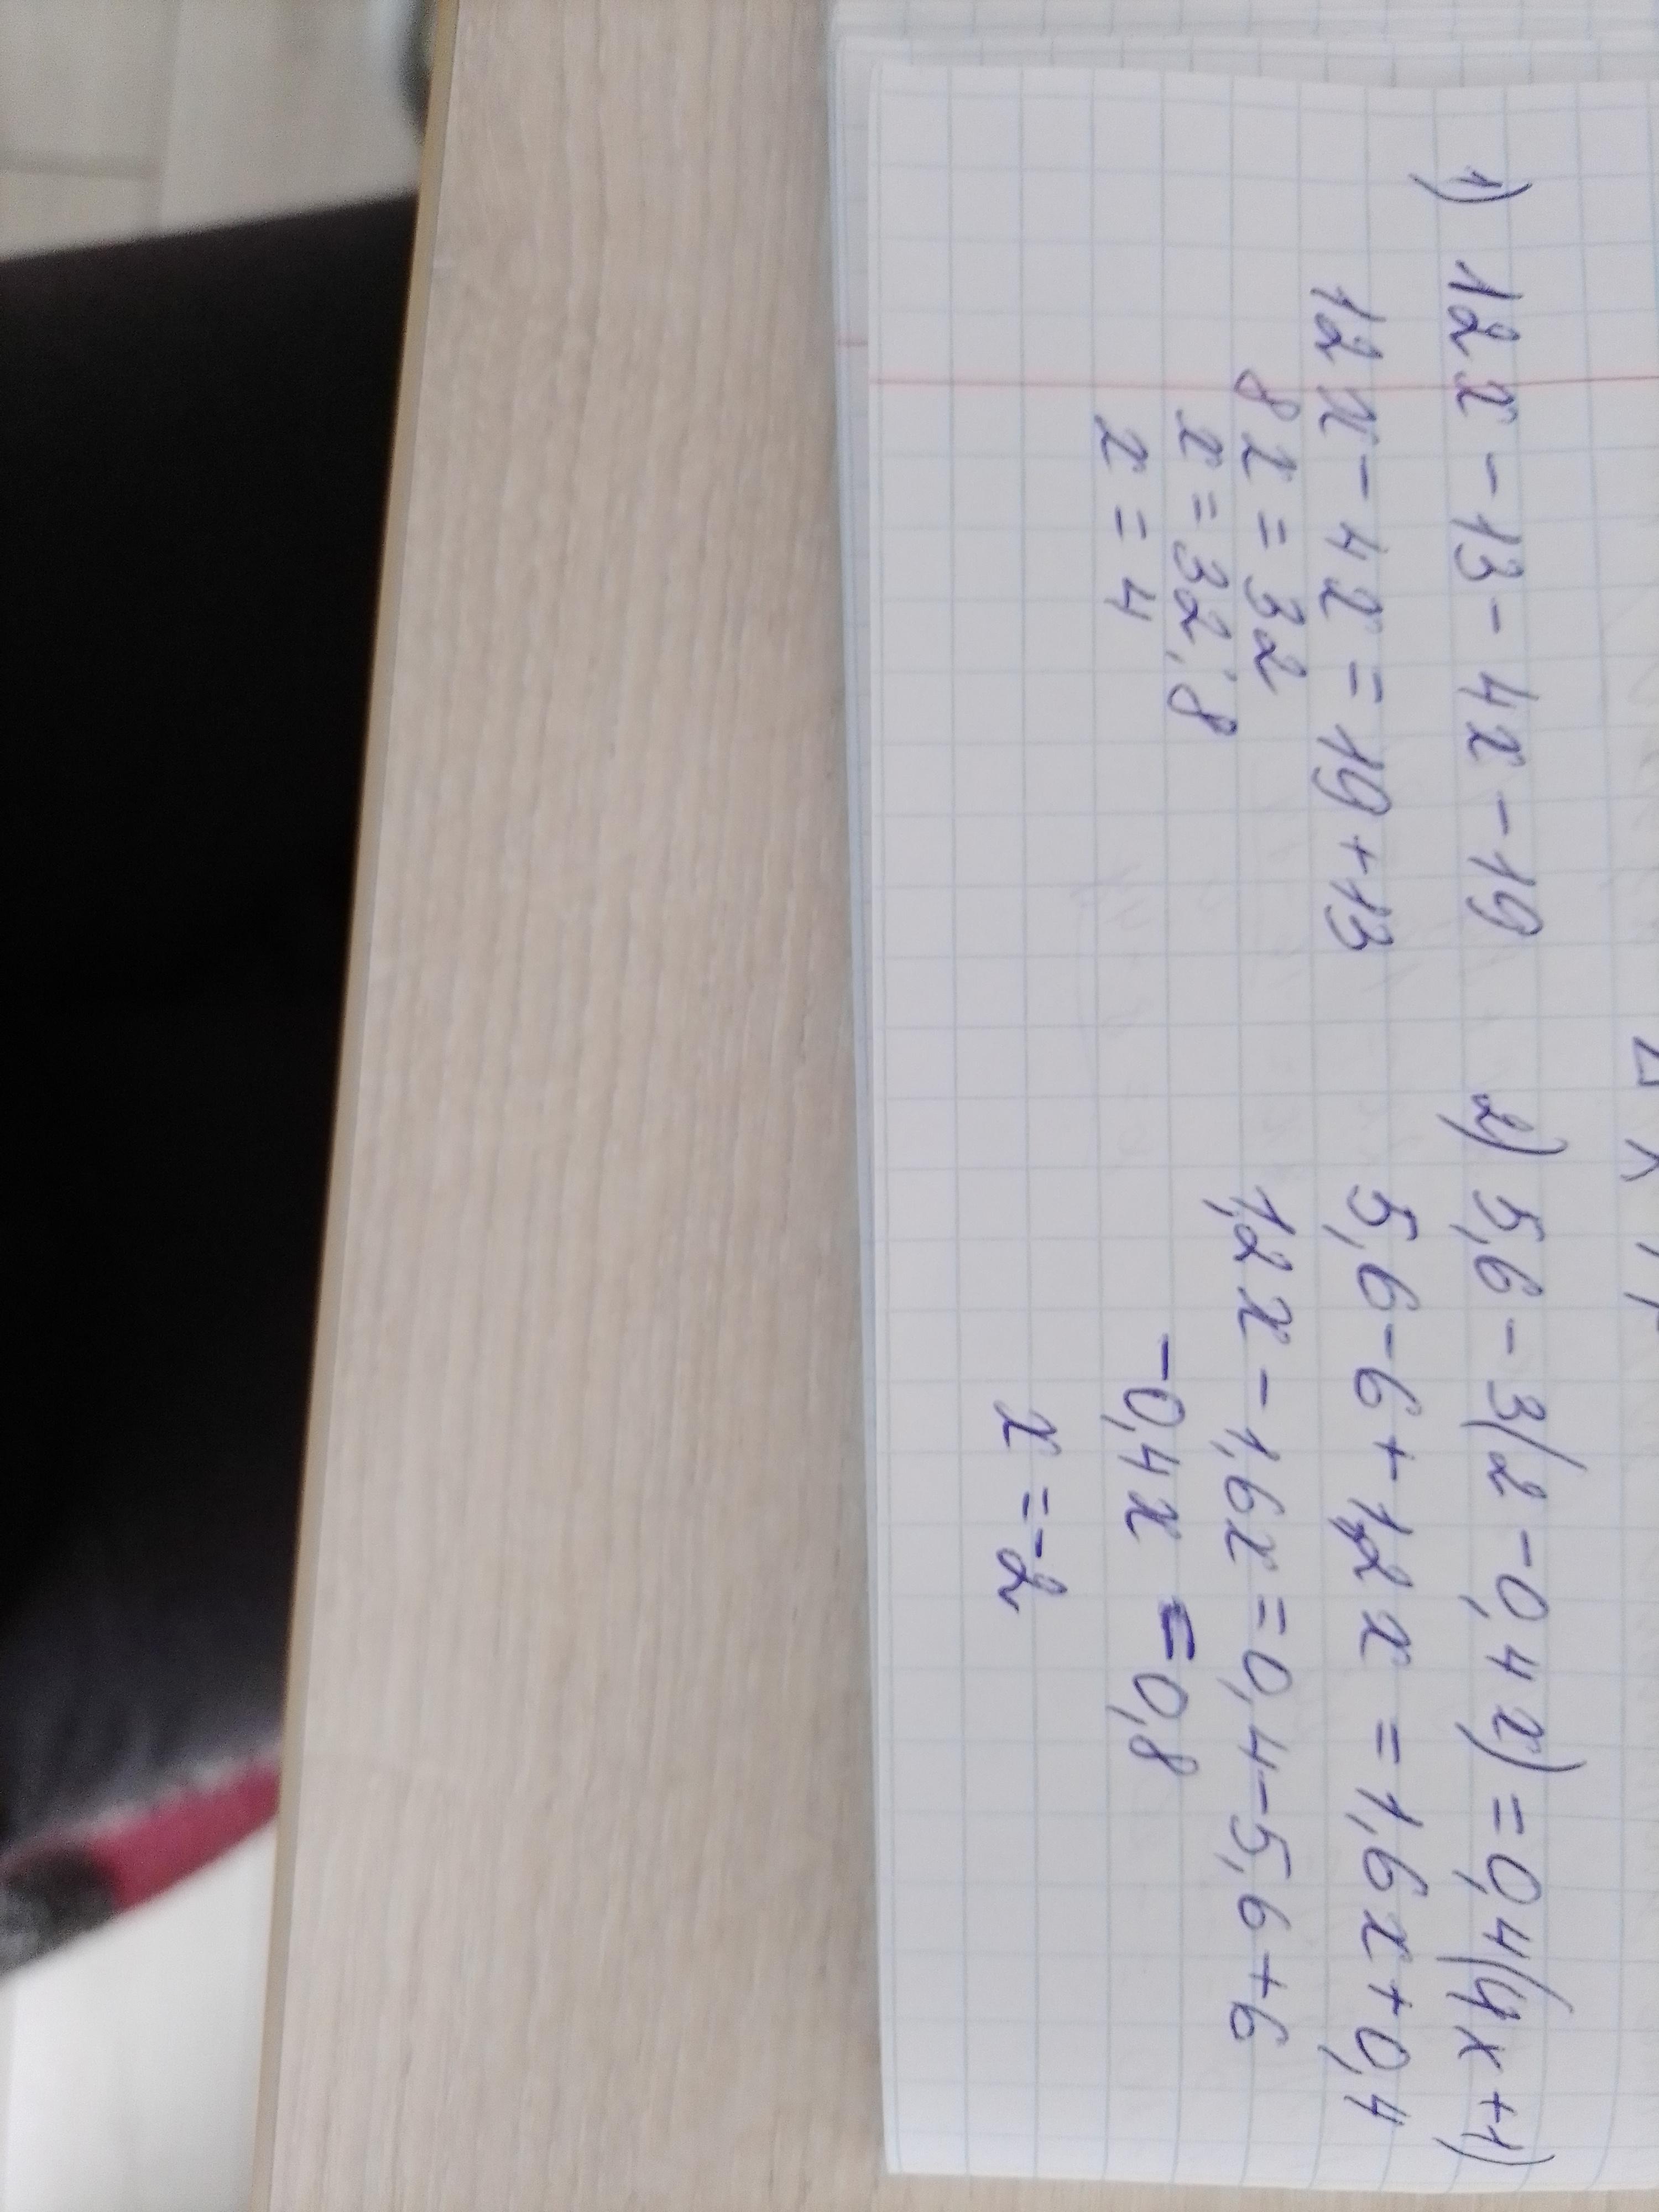 1) 12x - 13 - 4x - 19
12x - 4x = 19 + 13
8x = 32
x = 32 : 8
x = 4
2) 5,6 - 3(2 - 0,4x) = 0,4(4x + 1)
5,6 - 6 + 1,2x = 1,6x + 0,4
1,2x - 1,6x = 0,4 - 5,6 + 6
-0,4x = 0,8
x = -2